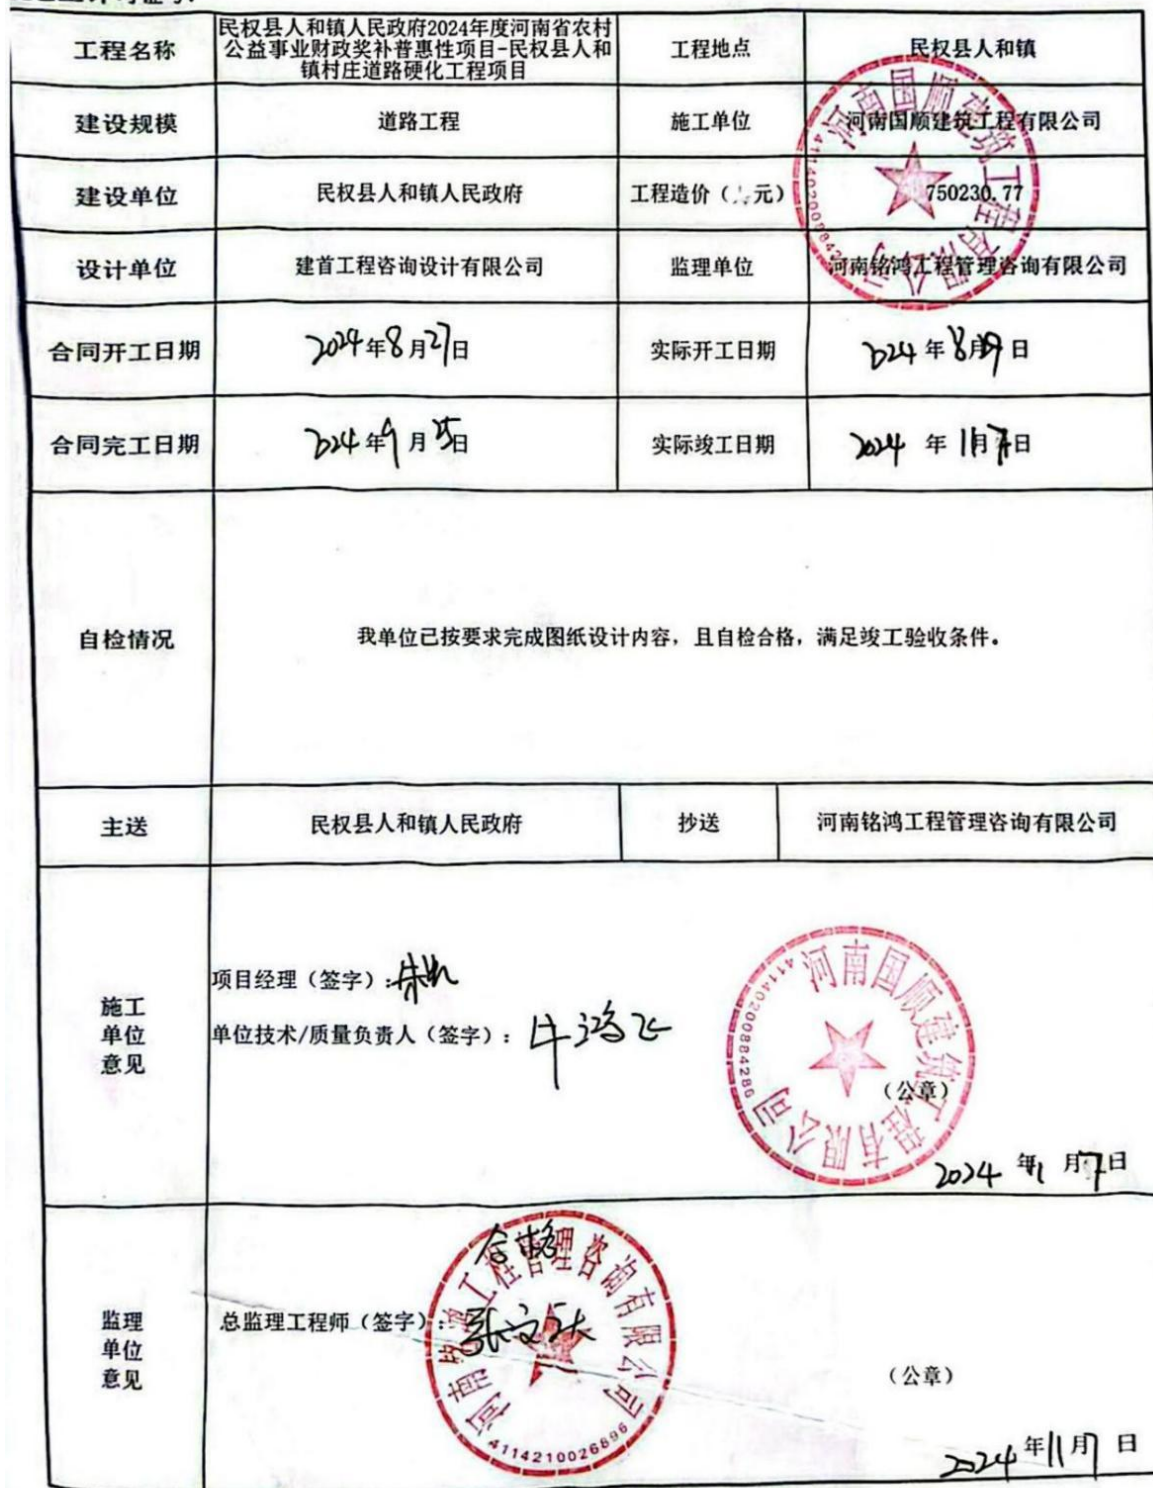 工程名称
民权县人和镇人民政府2024年度河南省农村
公益事业财政奖补普惠性项目-民权县人和
镇村庄道路硬化工程项目
工程地点
民权县人和镇
建设规模
道路工程
施工单位
河南国顺建筑工程有限公司
建设单位
民权县人和镇人民政府
工程造价（元）
750230.77
设计单位
建首工程咨询设计有限公司
监理单位
河南铭鸿工程管理咨询有限公司
河南国顺建筑工程有限公司
合同开工日期
2024年8月27日
实际开工日期
2024年8月 日
合同完工日期
2024年9月25日
实际竣工日期
2024年11月7日
自检情况
我单位已按要求完成图纸设计内容，且自检合格，满足竣工验收条件。
主送
民权县人和镇人民政府
抄送
河南铭鸿工程管理咨询有限公司
施工
单位
意见
项目经理（签字）：
单位技术/质量负责人（签字）：牛鸿飞
河南国顺建筑工程有限公司
41140200884286
（公章）
2024年11月7日
监理
单位
意见
合格
总监理工程师（签字）：张文跃
河南铭鸿工程管理咨询有限公司
4114210026896
（公章）
2024年11月7日